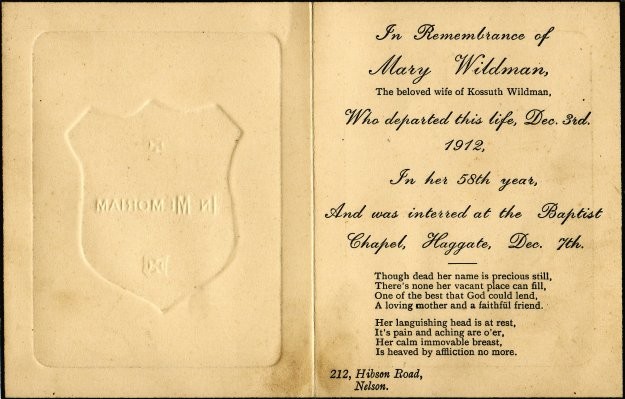 IN MEMORIAM
In Remembrance of
Mary Wildman,
The beloved wife of Kossuth Wildman,
Who departed this life, Dec. 3rd.
1912,
In her 58th year,
And was interred at the Baptist
Chapel, Haggate, Dec. 7th.
Though dead her name is precious still,
There's none her vacant place can fill,
One of the best that God could lend,
A loving mother and a faithful friend.
Her languishing head is at rest,
It's pain and aching are o'er,
Her calm immovable breast,
Is heaved by affliction no more.
212, Hibson Road,
Nelson.